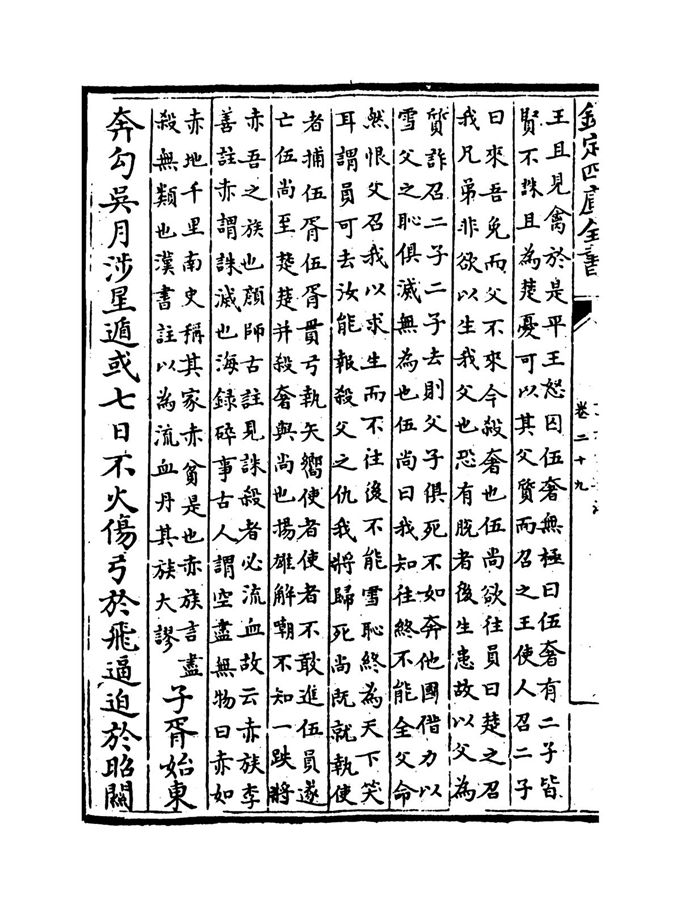 欽定四庫全書
卷二十九
王且見禽於是平王怒囚伍奢無極曰伍奢有二子皆
賢不誅且為楚憂可以其父質而召之王使人召二子
曰來吾免而父不來今殺奢也伍尚欲往員曰楚之召
我兄弟非欲以生我父也恐有脫者後生患故以父為
質詐召二子二子去則父子俱死不如奔他國借力以
雪父之恥俱滅無為也伍尚曰我知往終不能全父命
然恨父召我以求生而不往後不能雪恥終為天下笑
耳謂員可去汝能報殺父之仇我將歸死尚既就執使
者捕伍胥伍胥貫弓執矢嚮使者使者不敢進伍員遂
亡伍尚至楚楚并殺奢與尚也揚雄解嘲不知一跌將
赤吾之族也顔師古註見誅殺者必流血故云赤族李
善註赤謂誅滅也海録碎事古人謂空盡無物曰赤如
赤地千里南史稱其家赤貧是也赤族言盡
殺無類也漢書註以為流血丹其族大謬
子胥始東
奔勾吳月涉星遁或七日不火傷弓於飛逼迫於昭關